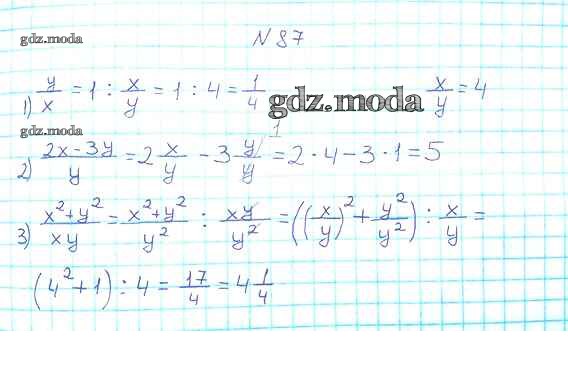 gdz.moda
N 87
1) y/x = 1 : x/y = 1 : 4 = 1/4
x/y = 4
gdz.moda
gdz.moda
2) (2x - 3y)/y = 2 x/y - 3 y/y 1 = 2 · 4 - 3 · 1 = 5
3) (x² + y²)/xy = (x² + y²)/y² : xy/y² = ((x/y)² + y²/y²) : x/y =
(4² + 1) : 4 = 17/4 = 4 1/4